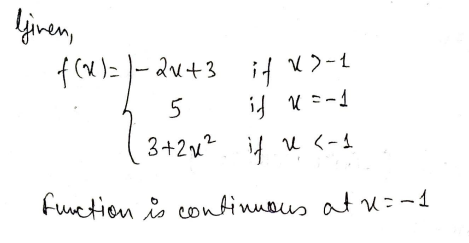 Given,
f(x) = { -2x+3 if x > -1
5 if x = -1
3+2x² if x < -1
Function is continuous at x = -1